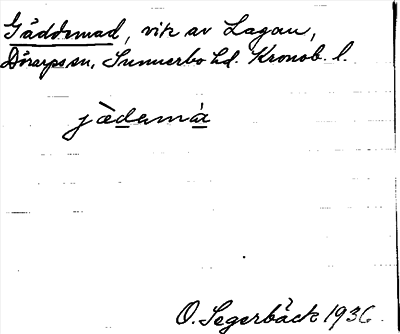 Gäddemad, vik av Lagan,
Dörarps sn, Sunnerbo hd. Kronob. l.
jàdamá
O. Segerbäck 1936.